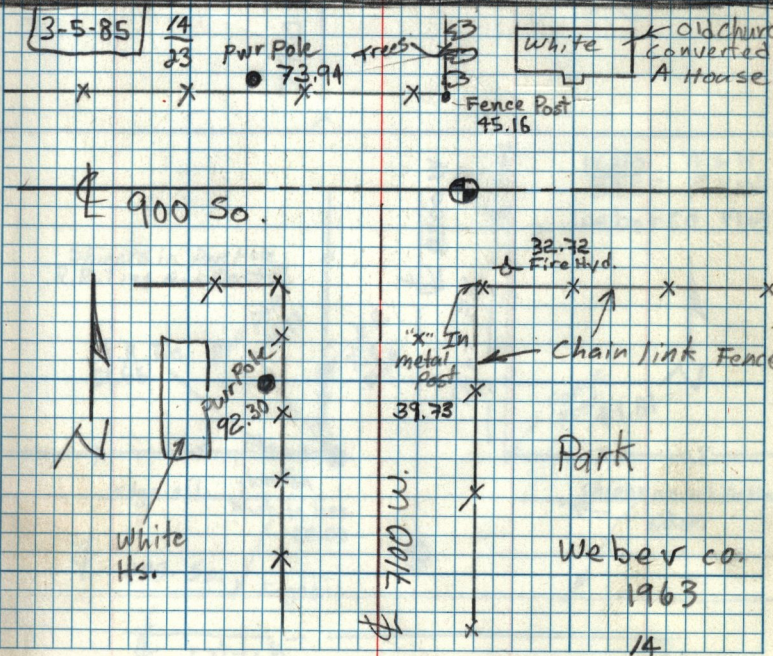 3-5-85
14
23
Pwr Pole
73.94
Trees
White
Old Churc
Converted
A House
Fence Post
45.16
℄ 900 So.
32.72
Fire Hyd.
"X" In
metal
Post
39.73
Chain link Fence
Pwr Pole
92.30
N
White
Hs.
℄ 7100 W.
Park
Weber co.
1963
14